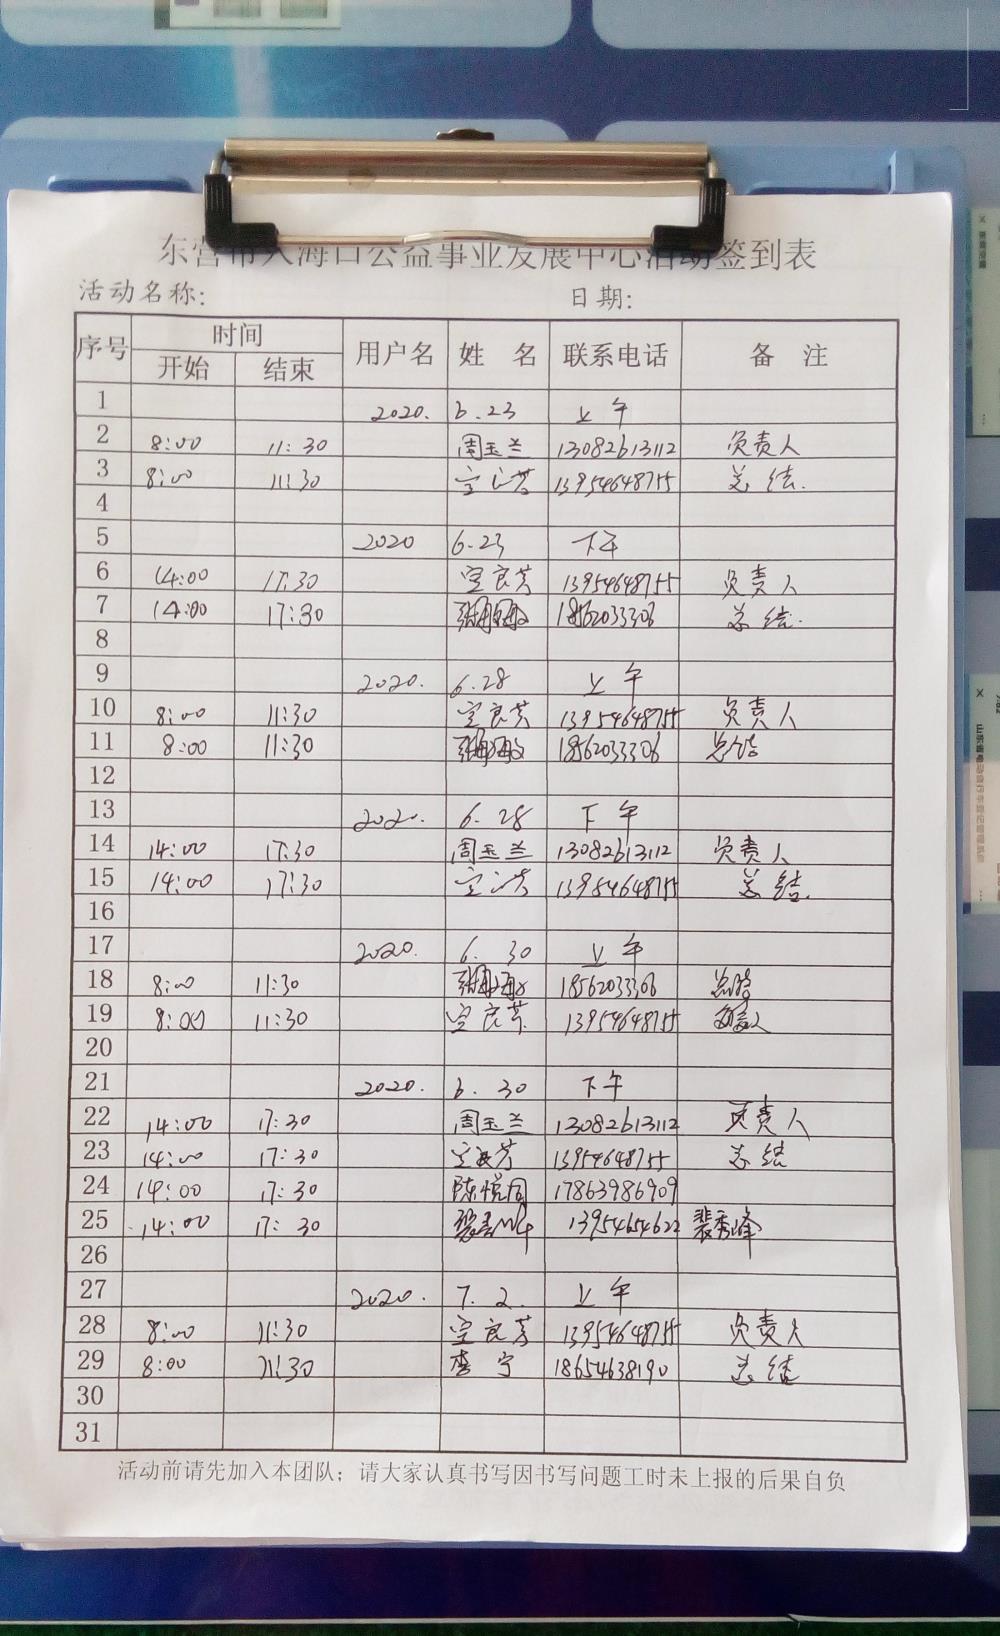 东营市入海口公益事业发展中心活动签到表
活动名称: 日期:
序号 时间 用户名 姓 名 联系电话 备 注
开始 结束
1 2020. 6.23 上午
2 8:00 11:30 周玉兰 13082613112 负责人
3 8:00 11:30 13954648755 总结.
4
5 2020 6.23 下午
6 14:00 17:30 良芳 13954648755 负责人
7 14:00 17:30 18562033306 总结.
8
9 2020. 6.28 上午
10 8:00 11:30 良芳 13954648755 负责人
11 8:00 11:30 18562033306 总结
12
13 2020. 6.28 下午
14 14:00 17:30 周玉兰 13082613112 负责人
15 14:00 17:30 13954648755 总结.
16
17 2020. 6.30 上午
18 8:00 11:30 18562033306 总结
19 8:00 11:30 良芳 13954648755 负责人
20
21 2020. 6.30 下午
22 14:00 17:30 周玉兰 13082613112 负责人
23 14:00 17:30 13954648755 总结
24 14:00 17:30 陈悦同 17863986909
25 14:00 17:30 13954654622 裴秀峰
26
27 2020. 7.2. 上午
28 8:00 11:30 良芳 13954648755 负责人
29 8:00 11:30 李宁 18654638190 总结
30
31
活动前请先加入本团队；请大家认真书写因书写问题工时未上报的后果自负